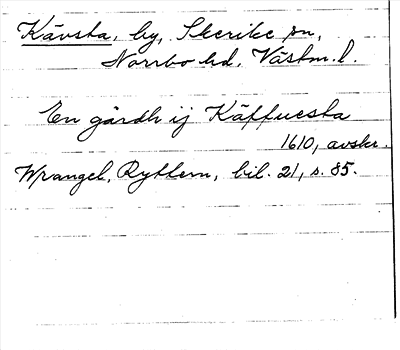 Kävsta, by, Skerike sn,
Norrbo hd, Västm. l.
En gårdh ij Käffuesta
1610, avskr.
Wrangel, Ryttern, bil. 21, s. 85.